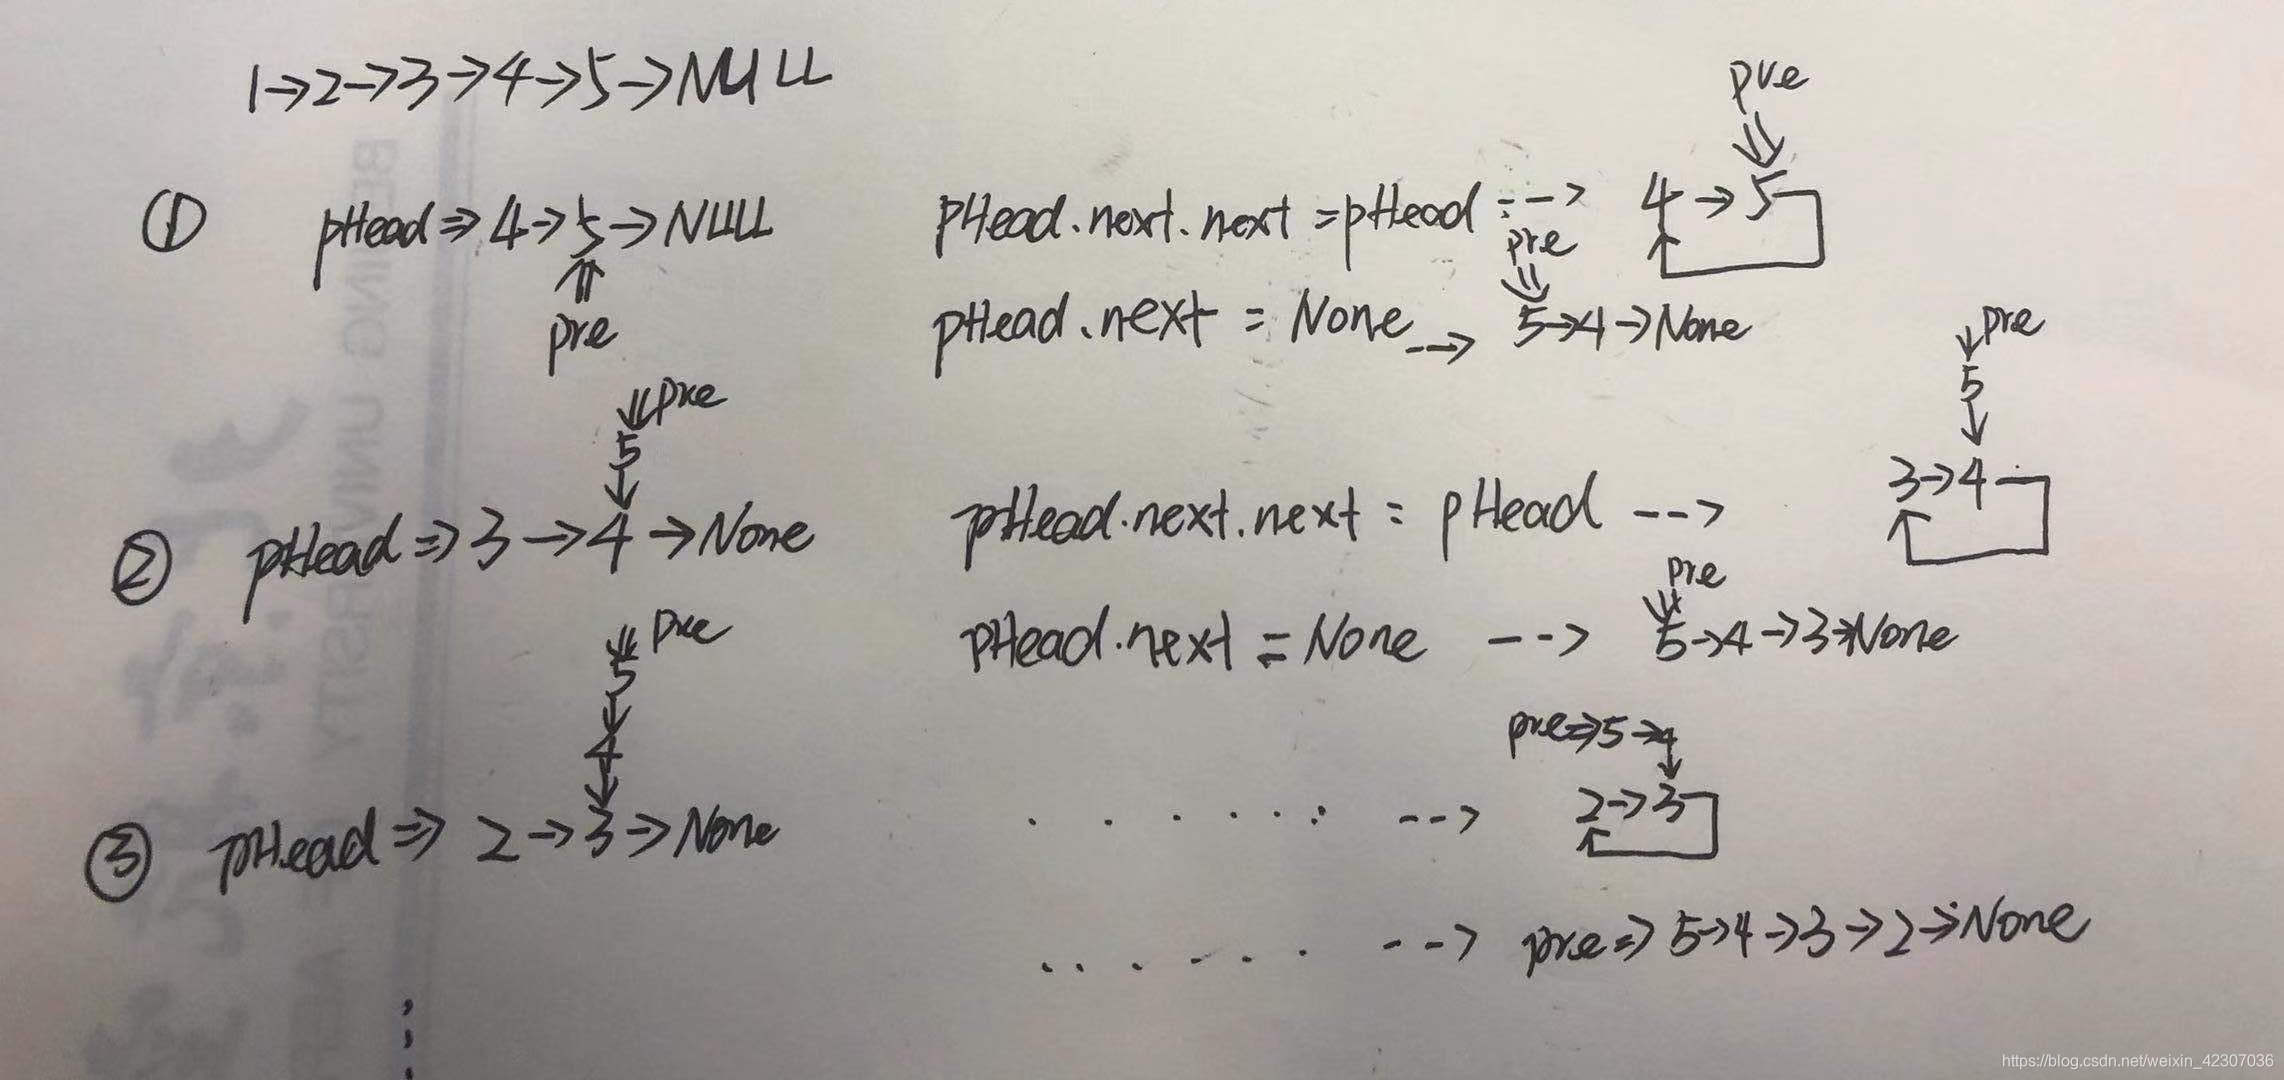 1→2→3→4→5→NULL
① pHead⇒4→5→NULL
pre
pHead.next.next=pHead --> 4→5
pre
pHead.next=None --> 5→4→None
pre
② pHead⇒3→4→None
5
pre
pHead.next.next=pHead --> 3→4
5
pre
pHead.next=None --> 5→4→3→None
pre
③ pHead⇒2→3→None
4
5
pre
...... --> 2→3
pre⇒5→4
...... --> pre⇒5→4→3→2→None
BEIJING UNIVERSITY
https://blog.csdn.net/weixin_42307036